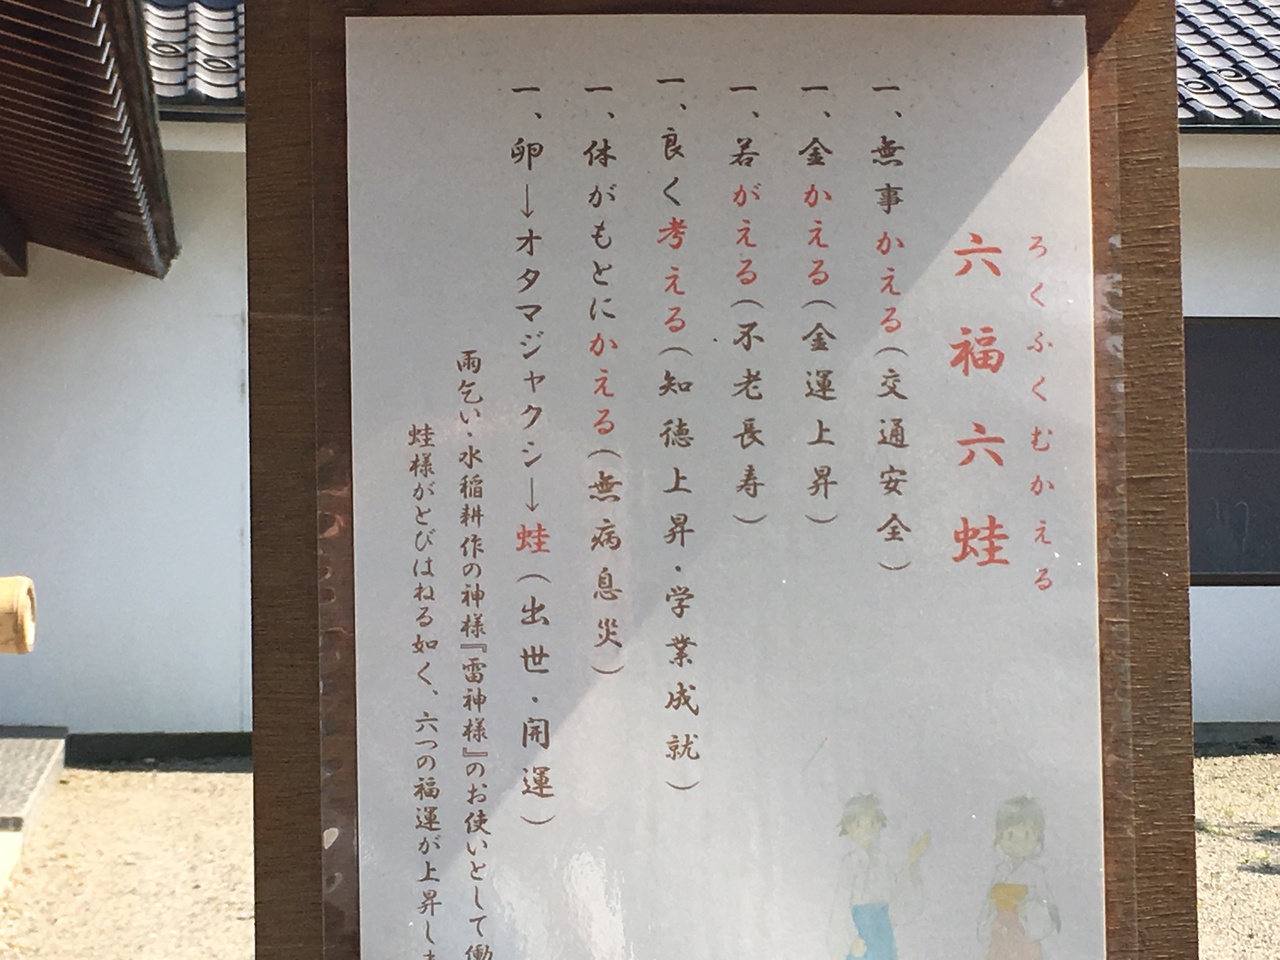 ろくふくむかえる
六福六蛙
一、無事かえる(交通安全)
一、金かえる(金運上昇)
一、若がえる(不老長寿)
一、良く考える(知徳上昇・学業成就)
一、体がもとにかえる(無病息災)
一、卵→オタマジャクシ→蛙(出世・開運)
雨乞い・水稲耕作の神様『雷神様』のお使いとして働
蛙様がとびはねる如く、六つの福運が上昇し